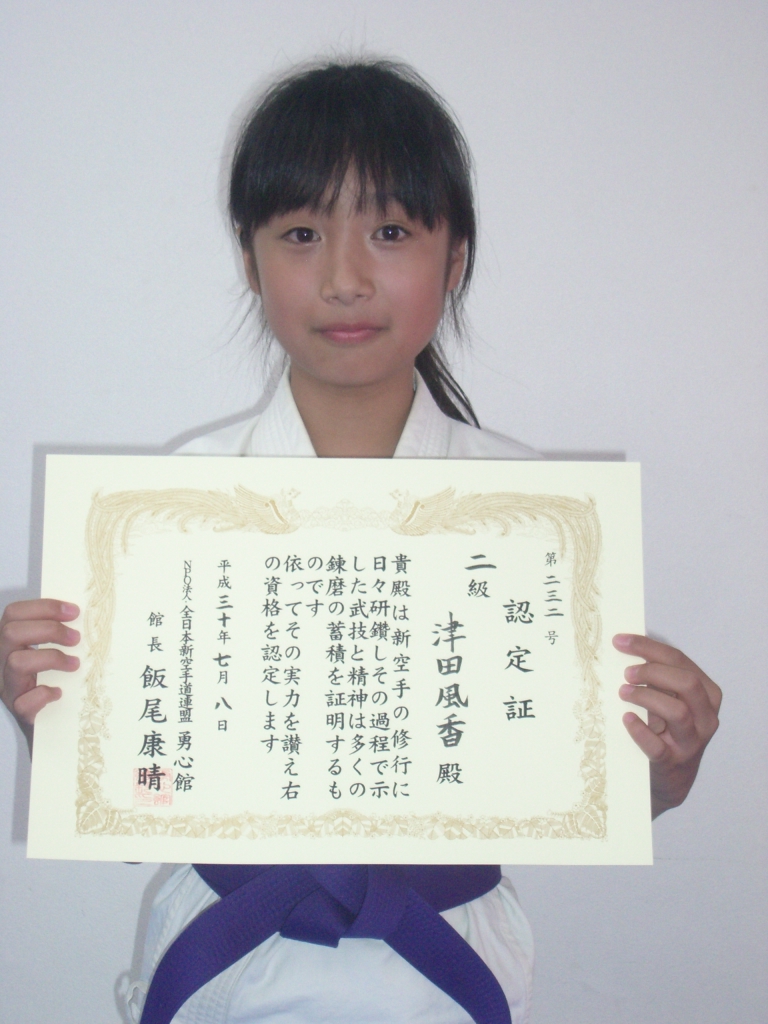 第二三二号
認定証
二級
津田風香殿
貴殿は新空手の修行に
日々研鑽しその過程で示
した武技と精神は多くの
錬磨の蓄積を証明するも
のです
依ってその実力を讃え右
の資格を認定します
平成三十年七月八日
NPO法人全日本新空手道連盟 勇心館
館長 飯尾康晴